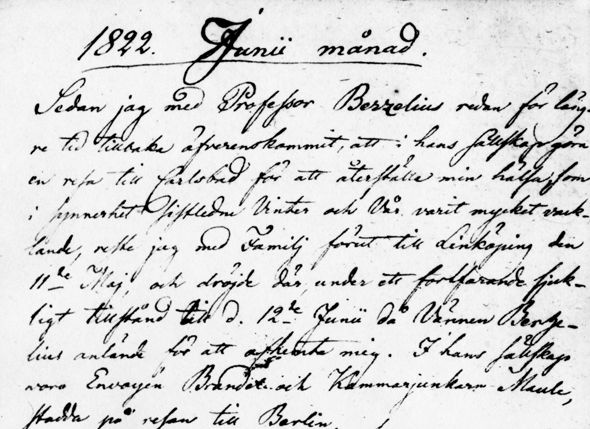 1822. Junii månad.
Sedan jag med Professor Berzelius redan för läng-
re tid tillbaka öfverenskommit, att i hans sällskap göra
en resa till Carlsbad för att återställa min hälsa, som
i synnerhet sistledne Vinter och Vår varit mycket vack-
lande, reste jag med Familj förut till Linköping den
11te Maj, och dröjde där under ett fortfarande sjuk-
ligt tillstånd till d. 12te Junii då Vännen Berze-
lius anlände för att afhemta mig. I hans sällskap
voro Envoyén Brandel och Kammarjunkarn Maule,
stadda på resan till Berlin.